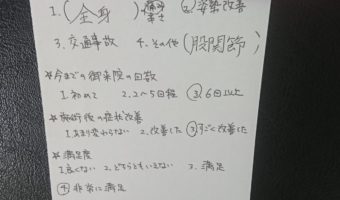 1.(全身) 痛み 辛さ ②姿勢改善
3.交通事故 4.その他(股関節)
☆今までの御来院の回数
1.初めて 2.2~5回程 ③6回以上
☆施術後の症状改善
1.あまり変わらない 2.改善した ③すごく改善した
☆満足度
1.良くない 2.どちらともいえない 3.満足
④非常に満足